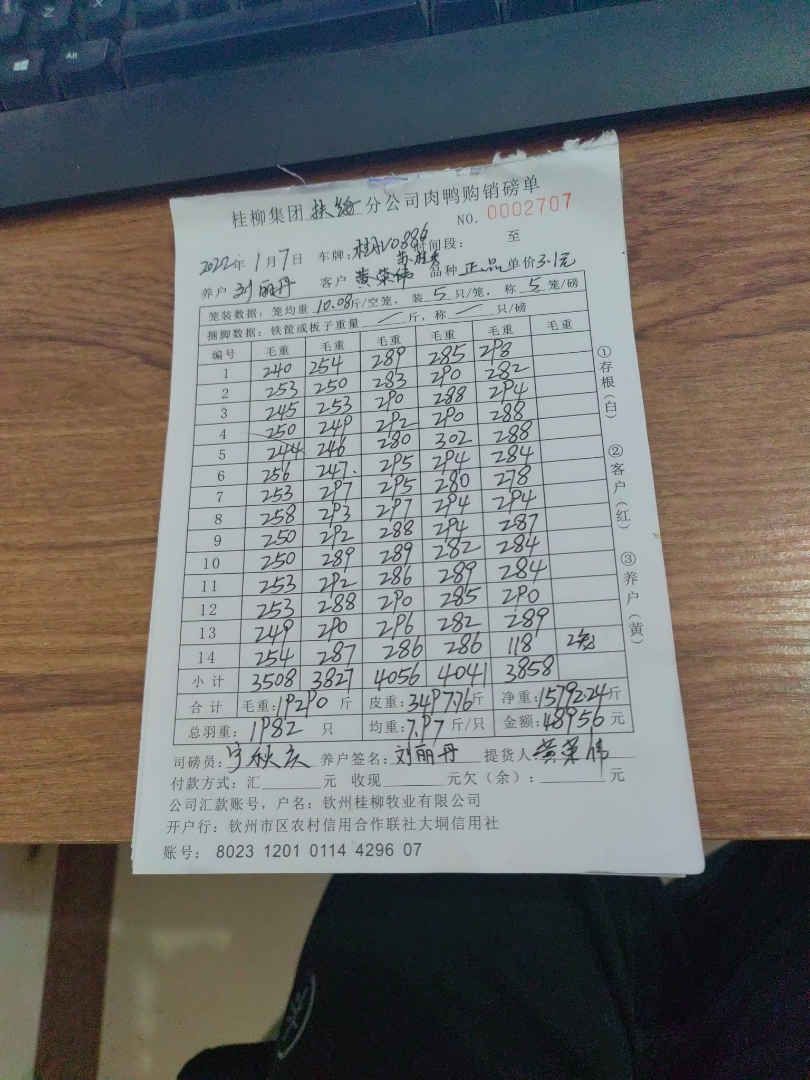 Alt
桂柳集团扶绥分公司肉鸭购销磅单
NO. 0002707
2022年1月7日 车牌: 时间段: 至
养户 刘丽丹 客户 黄荣伟 品种 正品 单价3.1元
笼装数据: 笼均重 10.08斤/空笼, 装 5 只/笼, 称 5 笼/磅
捆脚数据: 铁筐或板子重量 / 斤, 称 / 只/磅
编号 毛重 毛重 毛重 毛重 毛重 毛重
1 240 254 289 285 298
2 253 250 283 290 282
3 245 253 290 288 294
4 250 249 292 290 288
5 244 246 280 302 288
6 256 247 295 294 284
7 253 297 295 280 278
8 258 293 297 294 294
9 250 292 288 294 287
10 250 289 289 282 284
11 253 292 286 289 284
12 253 288 290 285 290
13 249 290 296 282 289
14 254 287 286 286 118
小计 3508 3827 4056 4041 3858
合计 毛重:19290 斤 皮重:3497.76斤 净重:15792.24斤
总羽重: 1982 只 均重:7.97 斤/只 金额:48956 元
司磅员: 养户签名: 刘丽丹 提货人 黄荣伟
付款方式: 汇 元 收现 元欠(余): 元
公司汇款账号, 户名: 钦州桂柳牧业有限公司
开户行: 钦州市区农村信用合作联社大垌信用社
账号: 8023 1201 0114 4296 07
①存根(白) ②客户(红) ③养户(黄)